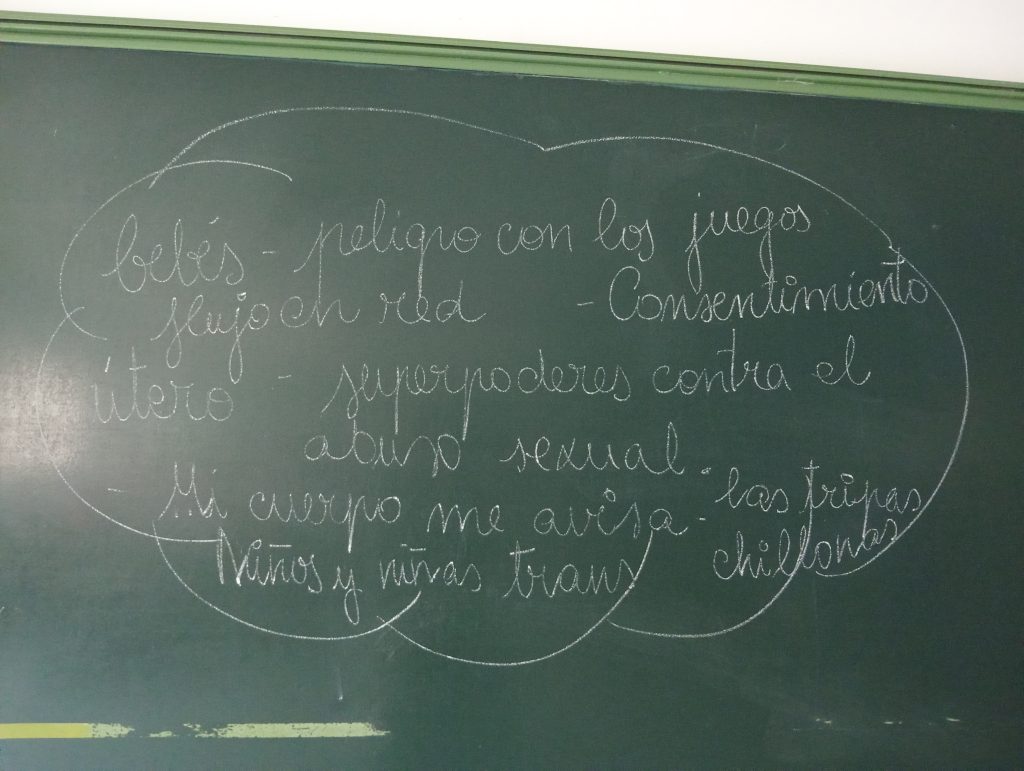 bebés - peligro con los juegos
flujo en red - Consentimiento
útero - superpoderes contra el
abuso sexual.
- Mi cuerpo me avisa - las tripas
Niños y niñas trans chillonas